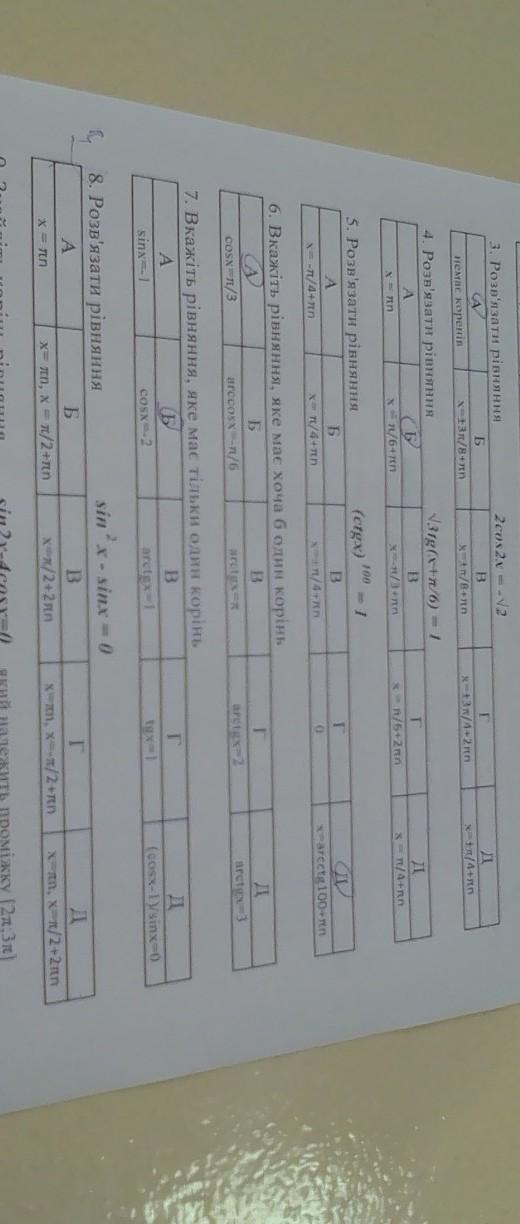 3. Розв'язати рівняння 2cos2x = -√2
А Б В Г Д
немає коренів x=±3π/8+πn x=±π/8+πn x=±3π/4+2πn x=±π/4+πn
4. Розв'язати рівняння √3tg(x+π/6) = 1
А Б В Г Д
x = πn x = π/6+πn x=-π/3+πn x = π/6+2πn x = π/4+πn
5. Розв'язати рівняння (ctgx)¹⁰⁰ = 1
А Б В Г Д
x= -π/4+πn x= π/4+πn x=±π/4+πn 0 x=arcctg100+πn
6. Вкажіть рівняння, яке має хоча б один корінь
А Б В Г Д
cosx=π/3 arccosx=-π/6 arctgx=π arctgx=2 arctgx=3
7. Вкажіть рівняння, яке має тільки один корінь
А Б В Г Д
sinx=-1 cosx=-2 arctgx=1 tgx=1 (cosx-1)/sinx=0
8. Розв'язати рівняння sin²x - sinx = 0
А Б В Г Д
x = πn x= πn, x = π/2+πn x=π/2+2πn x=πn, x=-π/2+πn x=πn, x=π/2+2πn
sin2x-4cosx=0 який належить проміжку [2π;3π]